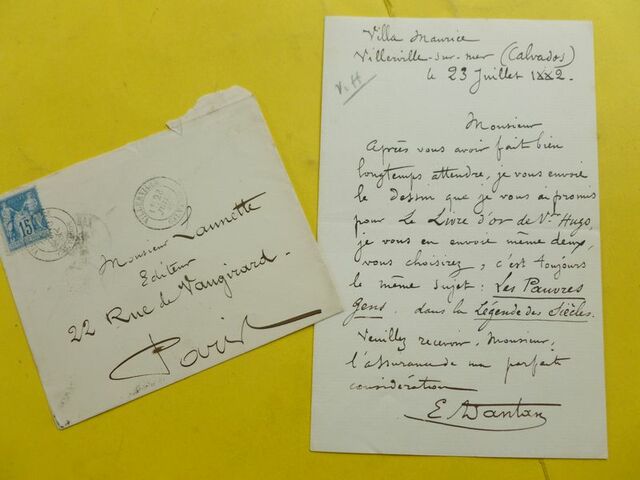 15
23
Monsieur Launette
Editeur
22 Rue de Vaugirard.
Paris
Villa Maurice
Villerville-sur-mer (Calvados)
le 23 Juillet 1882.
V. H
Monsieur
Après vous avoir fait bien
longtemps attendre, je vous envoie
le dessin que je vous ai promis
pour Le Livre d'or de Vor Hugo,
je vous en envoie même deux,
vous choisirez, c'est toujours
le même sujet: Les Pauvres
Gens. dans la Légende des Siècles.
Veuillez recevoir, Monsieur,
l'assurance de ma parfaite
considération
E Dantan